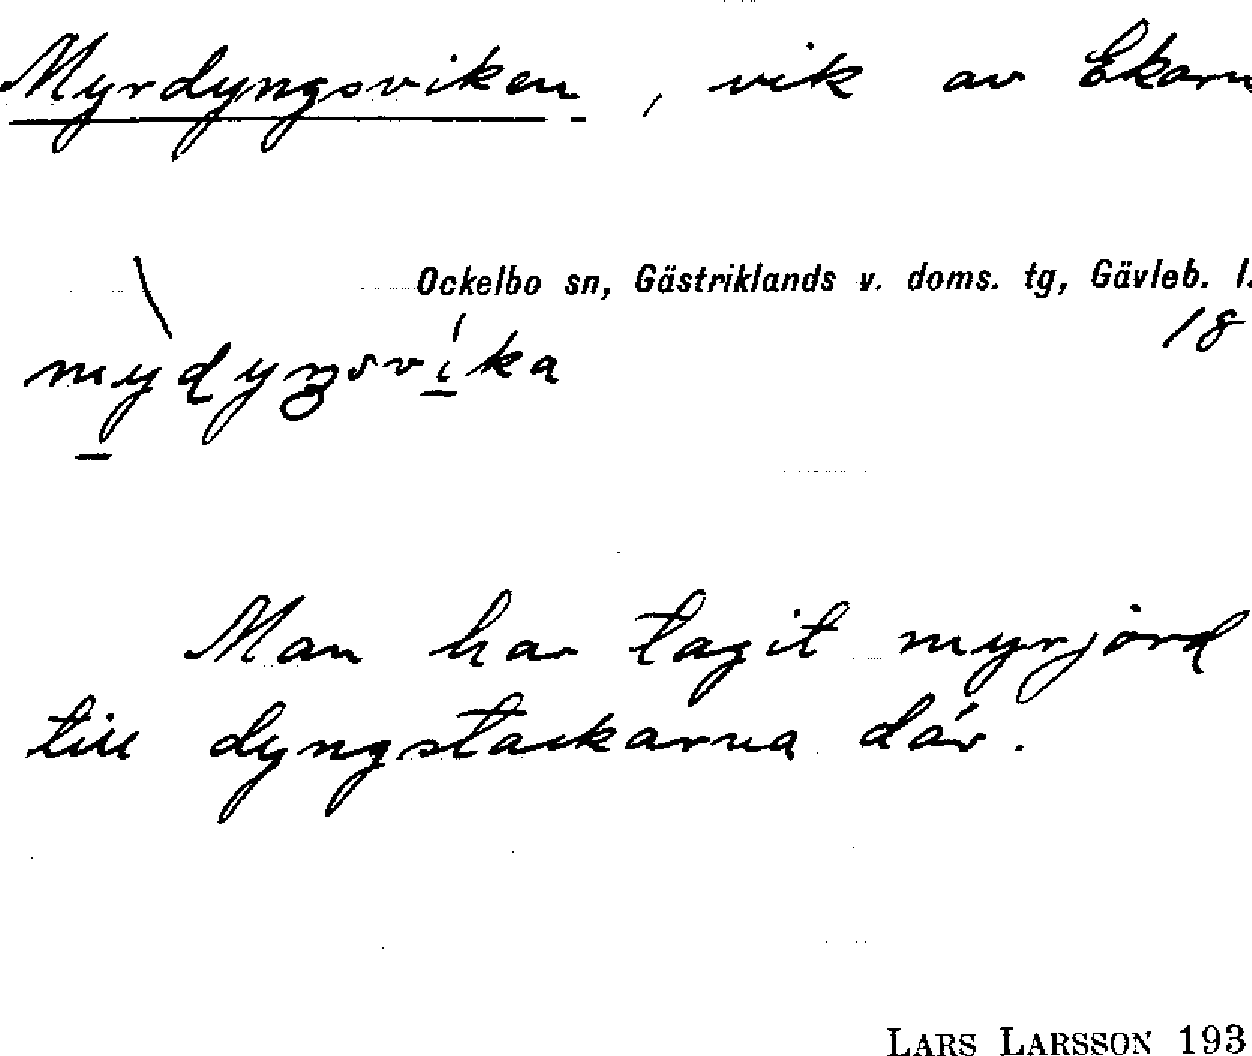 Myrdyngsviken, vik av Ekarn
Ockelbo sn, Gästriklands v. doms. tg, Gävleb. l.
18
mydyŋsvika
Man har tagit myrjord
till dyngstackarna där.
LARS LARSSON 193